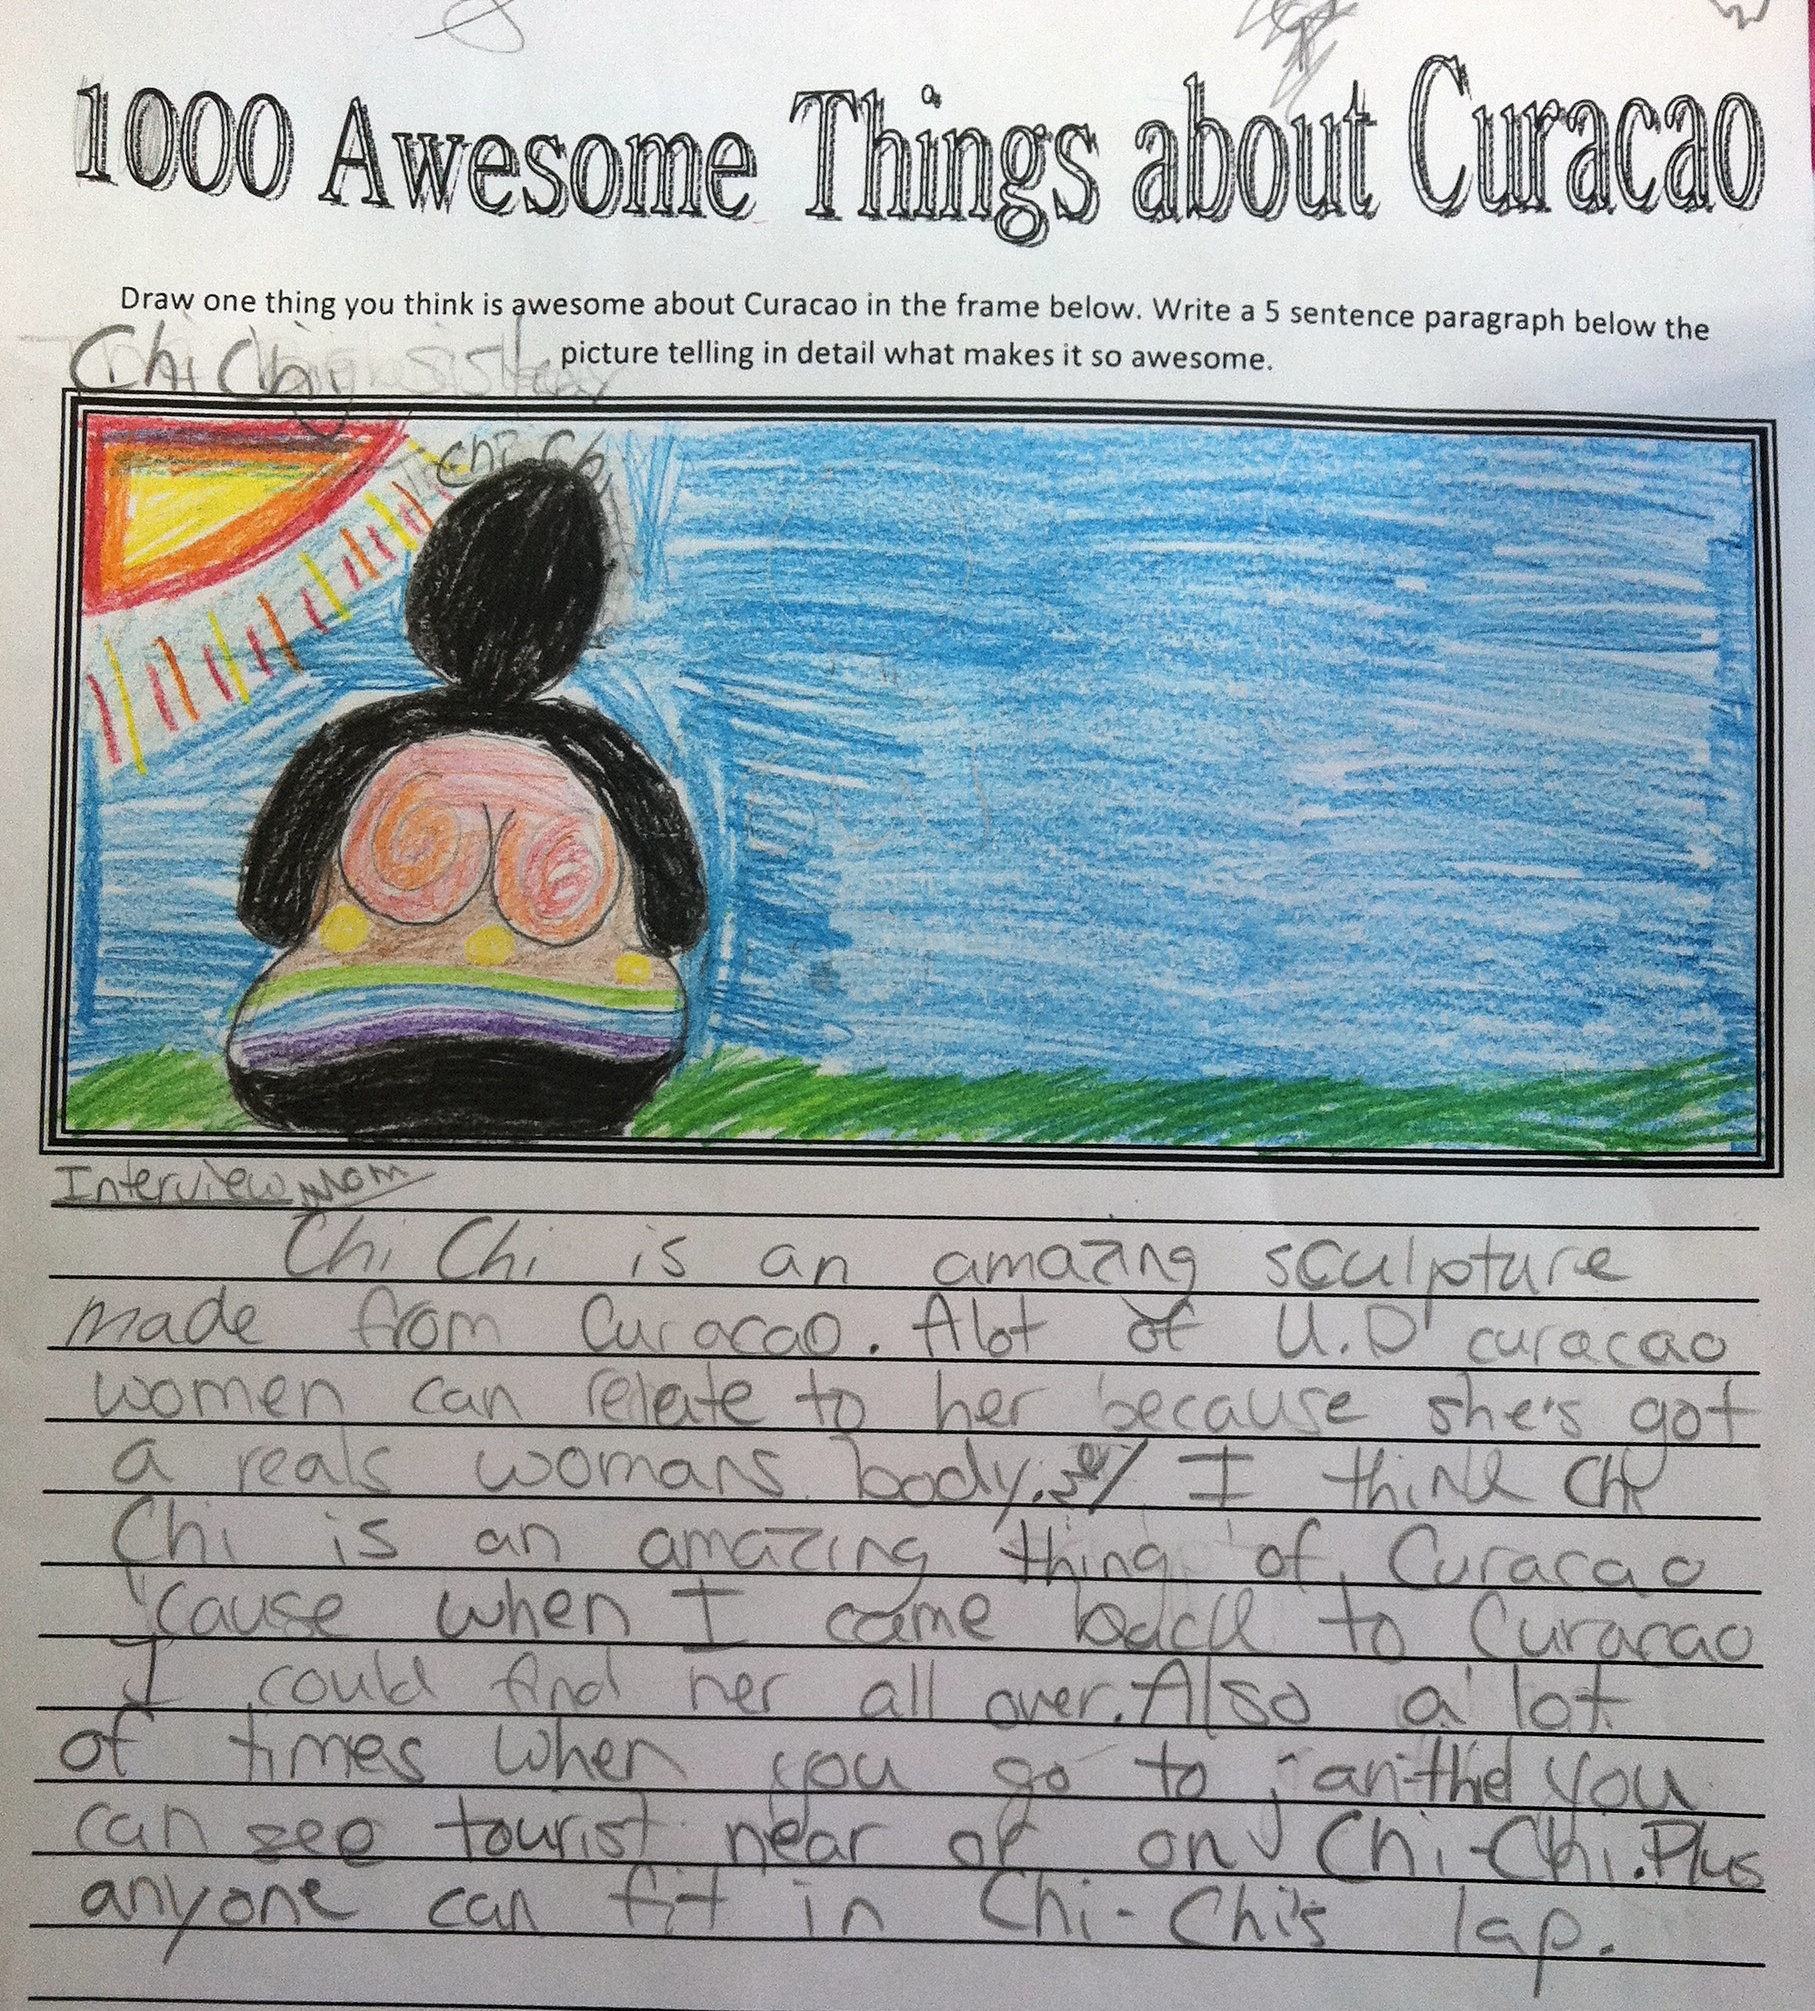 1000 Awesome Things about Curacao
Draw one thing you think is awesome about Curacao in the frame below. Write a 5 sentence paragraph below the
picture telling in detail what makes it so awesome.
Chi Chi
Chi-Ch
Interview Mom
Chi Chi is an amazing sculpture
made from Curacao. Alot of U.D curacao
women can relate to her because she's got
a reals womans body. I think Chi
Chi is an amazing thing of Curacao
'cause when I came back to Curacao
I could find her all over. Also a lot
of times when you go to you
can see tourist near or on Chi-Chi. Plus
anyone can fit in Chi-Chi's lap.